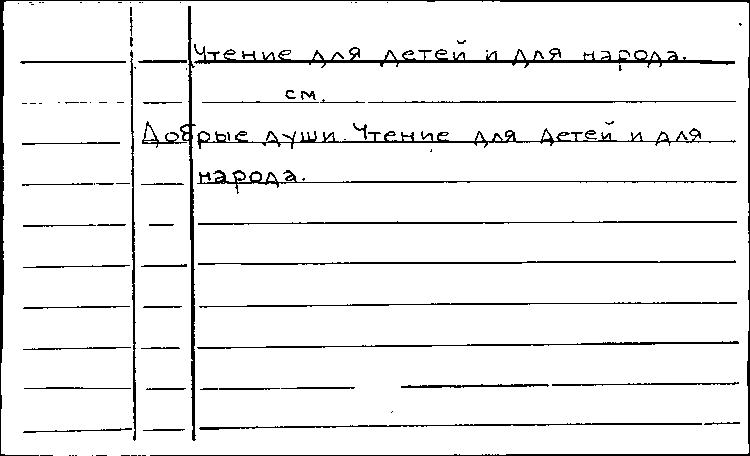 Чтение для детей и для народа.
см.
Добрые души. Чтение для детей и для
народа.